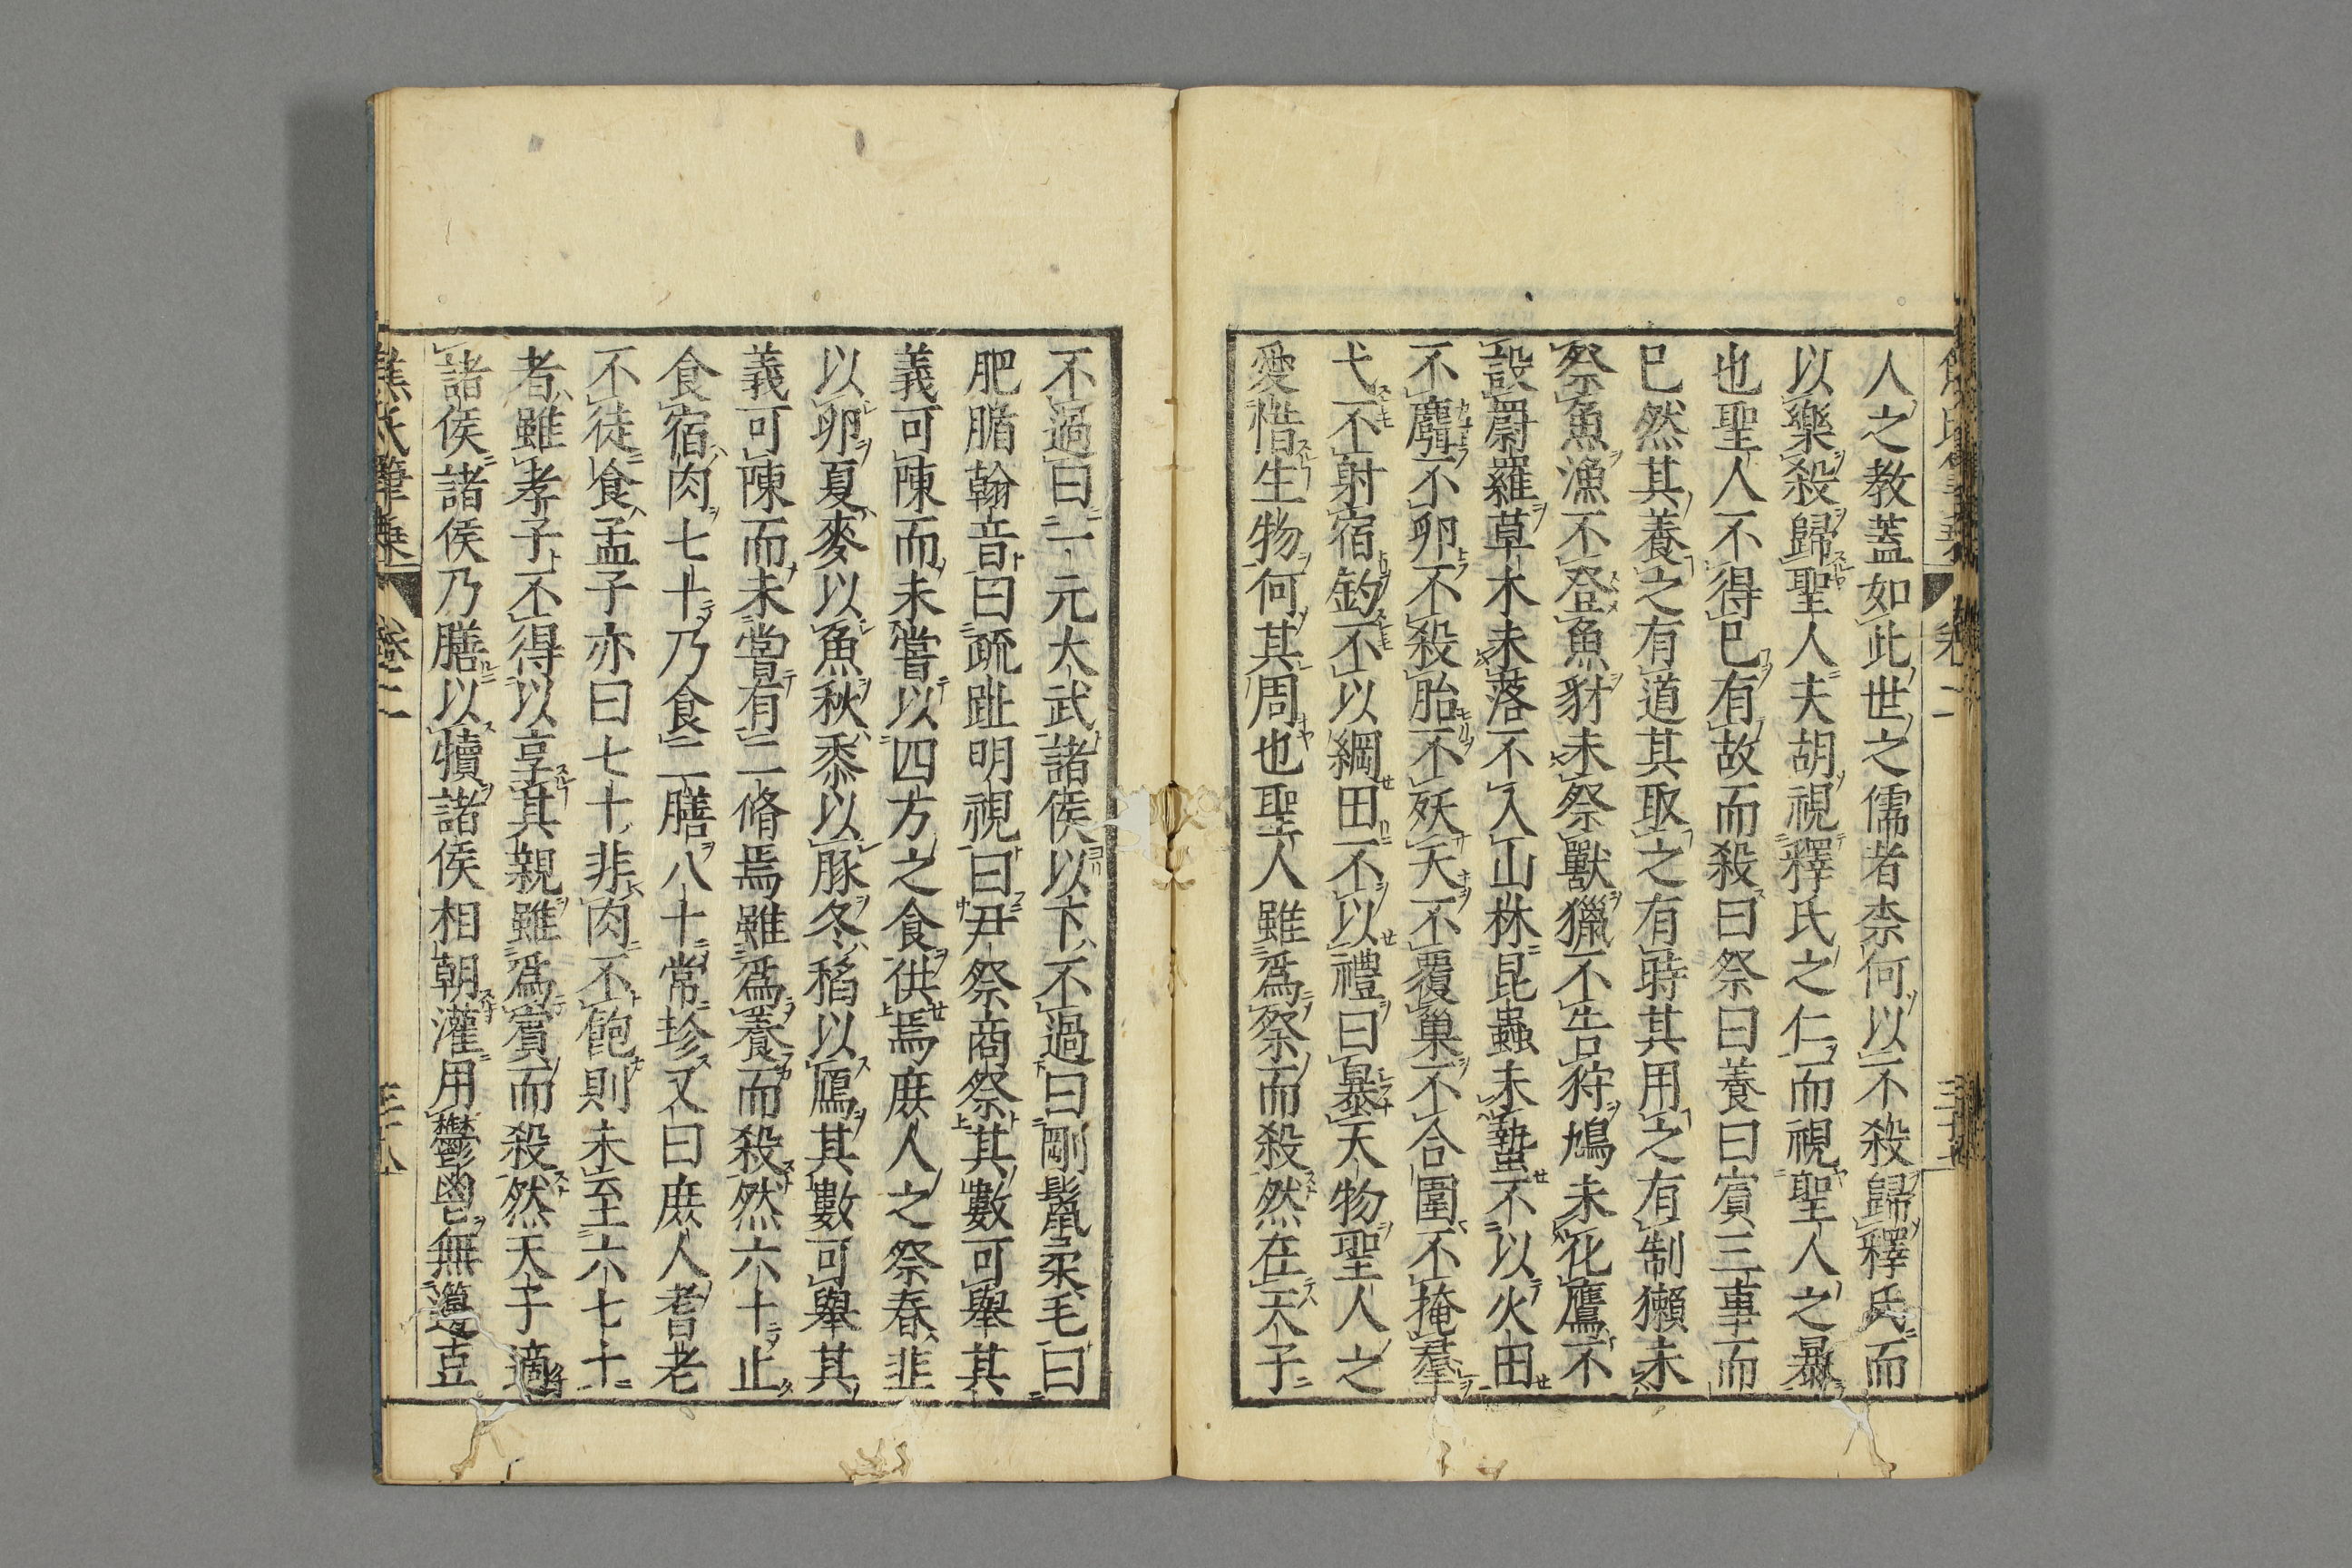 人之教蓋如此世之儒者柰何以不殺歸釋氏而
以樂殺歸聖人夫胡視釋氏之仁而視聖人之暴
也聖人不得已有故而殺曰祭曰養曰賓三事而
已然其養之有道其取之有時其用之有制獺未
祭魚漁不登魚豺未祭獸獵不告狩鳩未化鷹不
設罻羅草木未落不入山林昆蟲未蟄不以火田
不麛不卵不殺胎不殀夭不覆巢不合圍不掩羣
弋不射宿釣不以綱田不以禮曰暴天物聖人之
愛惜生物何其周也聖人雖爲祭而殺然在天子
不過曰一元大武諸侯以下不過曰剛鬣柔毛曰
肥腯翰音曰疏趾明視曰尹祭商祭其數可舉其
義可陳而未嘗以四方之食供焉庶人之祭春韭
以卵夏麥以魚秋黍以豚冬稻以鴈其數可舉其
義可陳而未嘗有二脩焉雖爲養而殺然六十止
食宿肉七十乃食二膳八十常珍又曰庶人耆老
不徒食孟子亦曰七十非肉不飽則未至六七十
者雖孝子不得以享其親雖爲賓而殺然天子適
諸侯諸侯乃膳以犢諸侯相朝灌用鬱鬯無籩豆
焦氏筆乗
卷二
三十八